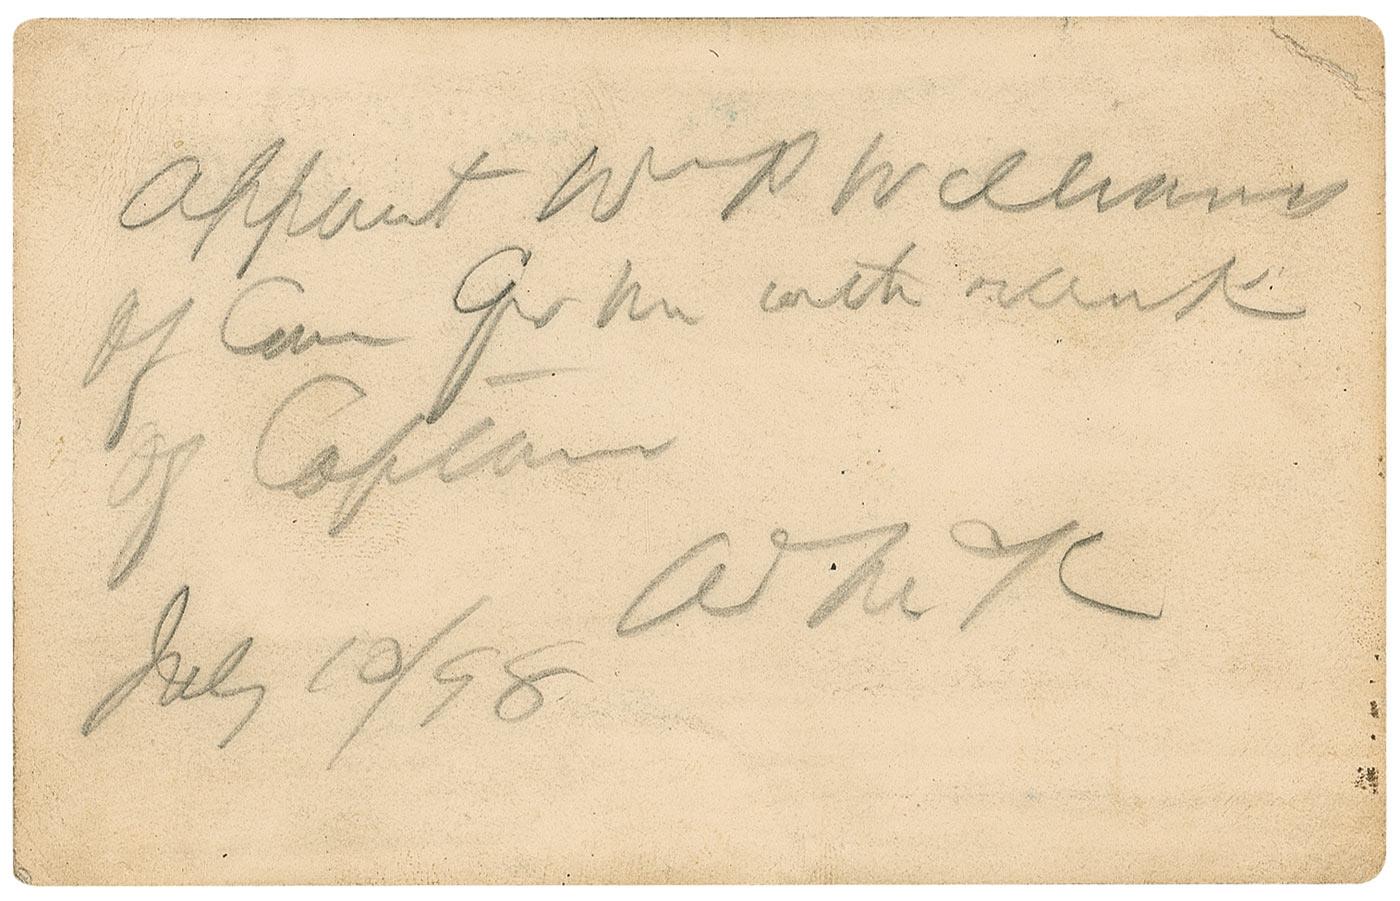 Appoint Wm P Williams
of Com with rank
of Captain
W McK
July 12/98